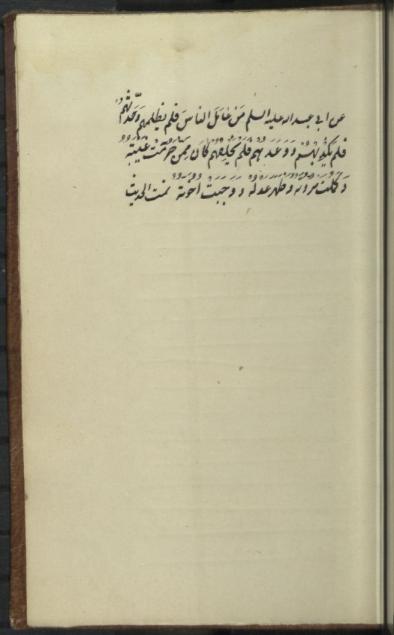 عن ابی عبد الله علیه السلم مَنْ عَامَلَ الناسَ فلم یظلمهم وَحَدَّثَهُمْ
فلم یَکْذِبْهُمْ وَ وَعَدَهُمْ فَلَمْ یُخْلِفْهُمْ کَانَ مِمَّنْ حَرُمَتْ غِیْبَتُهُ
وَ کَمُلَتْ مُرُوَّتُهُ وَ ظَهَرَ عَدْلُهُ وَ وَجَبَتْ اُخُوَّتُهُ تمت الحدیث